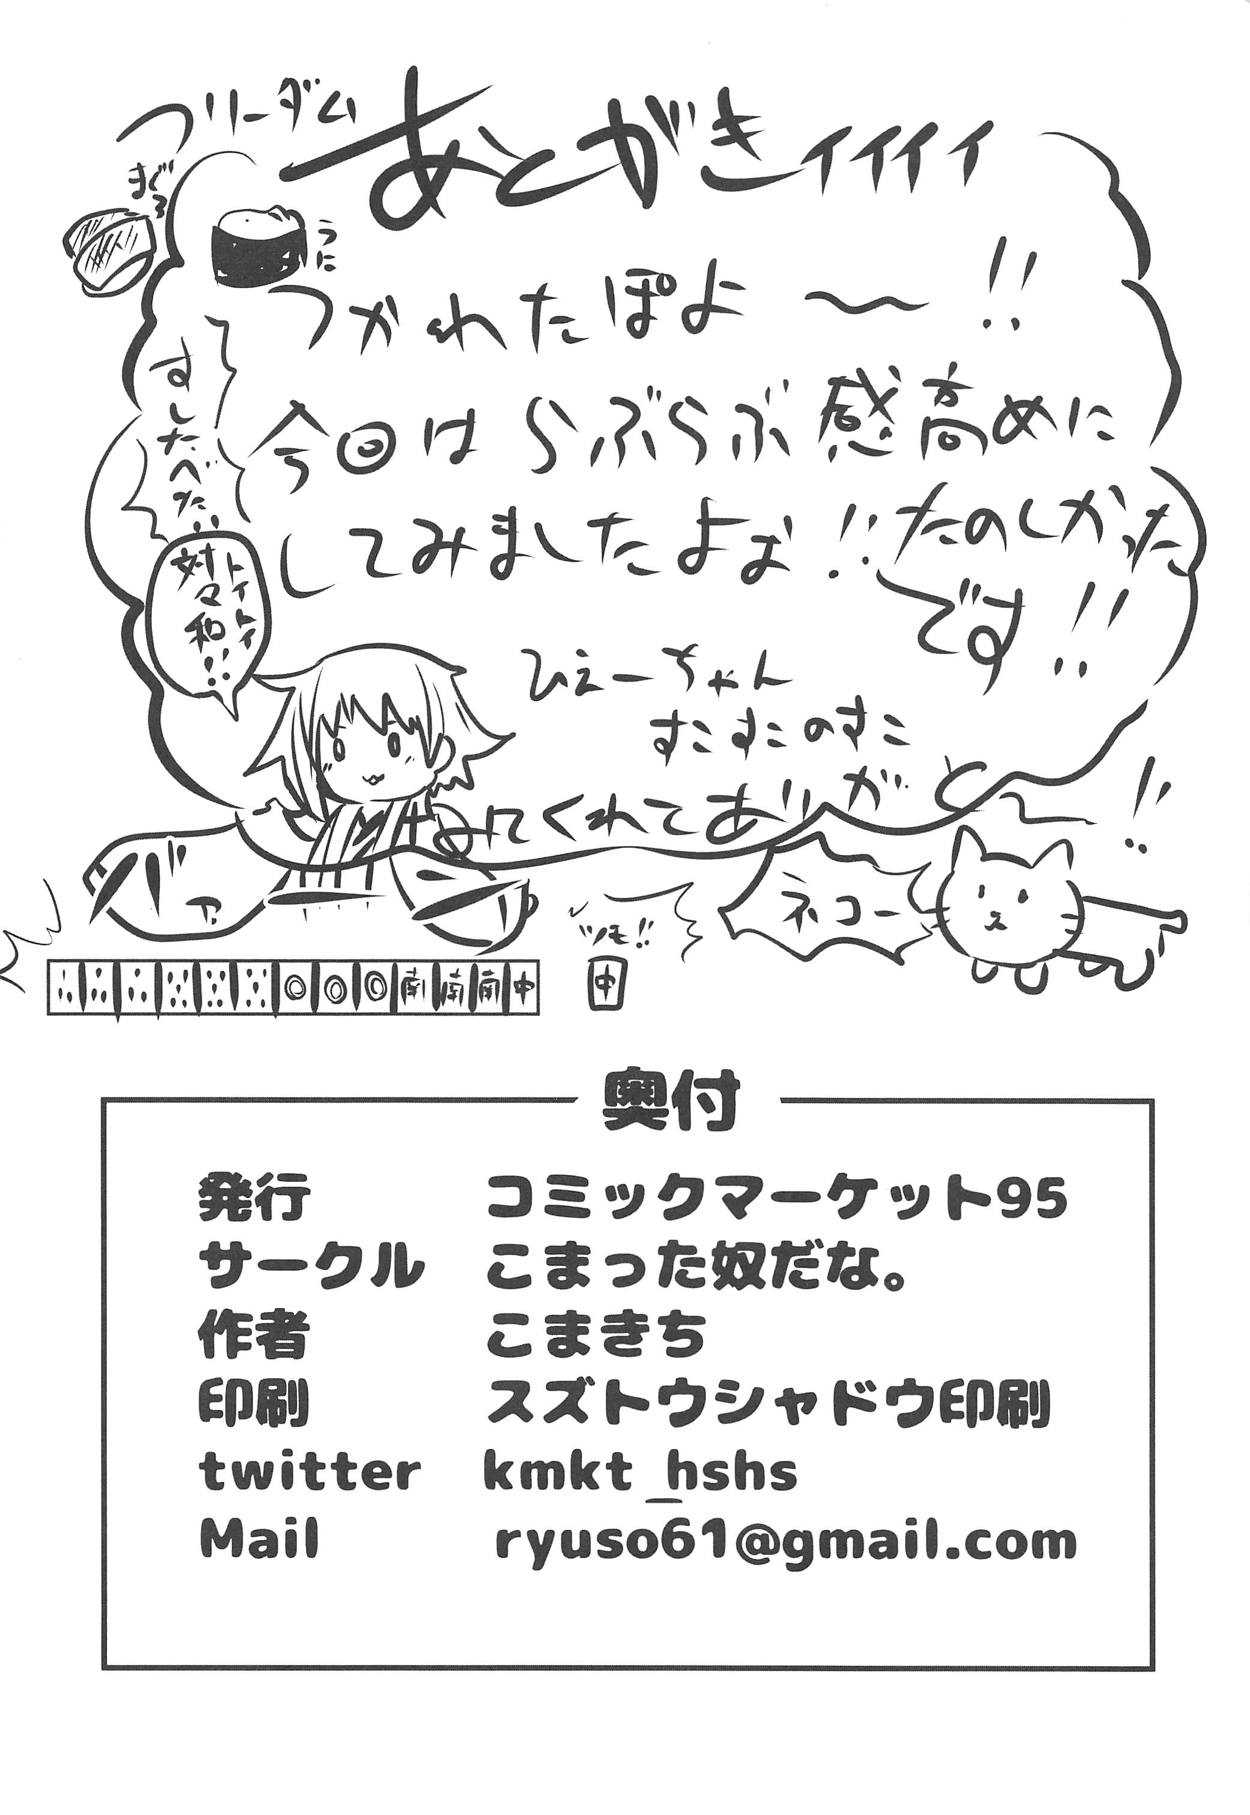 フリーダム
あとがきィィィィ
まぐろ
うに
つかれたぽよ〜!!
すしたべたい
今回はらぶらぶ感高めに
してみましたよぉ!!たのしかった
です!!
トイトイ
対々和!!
ひえーちゃん
すこすこのすこ
みてくれてありがと〜!!
ネコー
ツモ!!
南 南 南 中
中
奥付
発行 コミックマーケット95
サークル こまった奴だな。
作者 こまきち
印刷 スズトウシャドウ印刷
twitter kmkt_hshs
Mail ryuso61@gmail.com